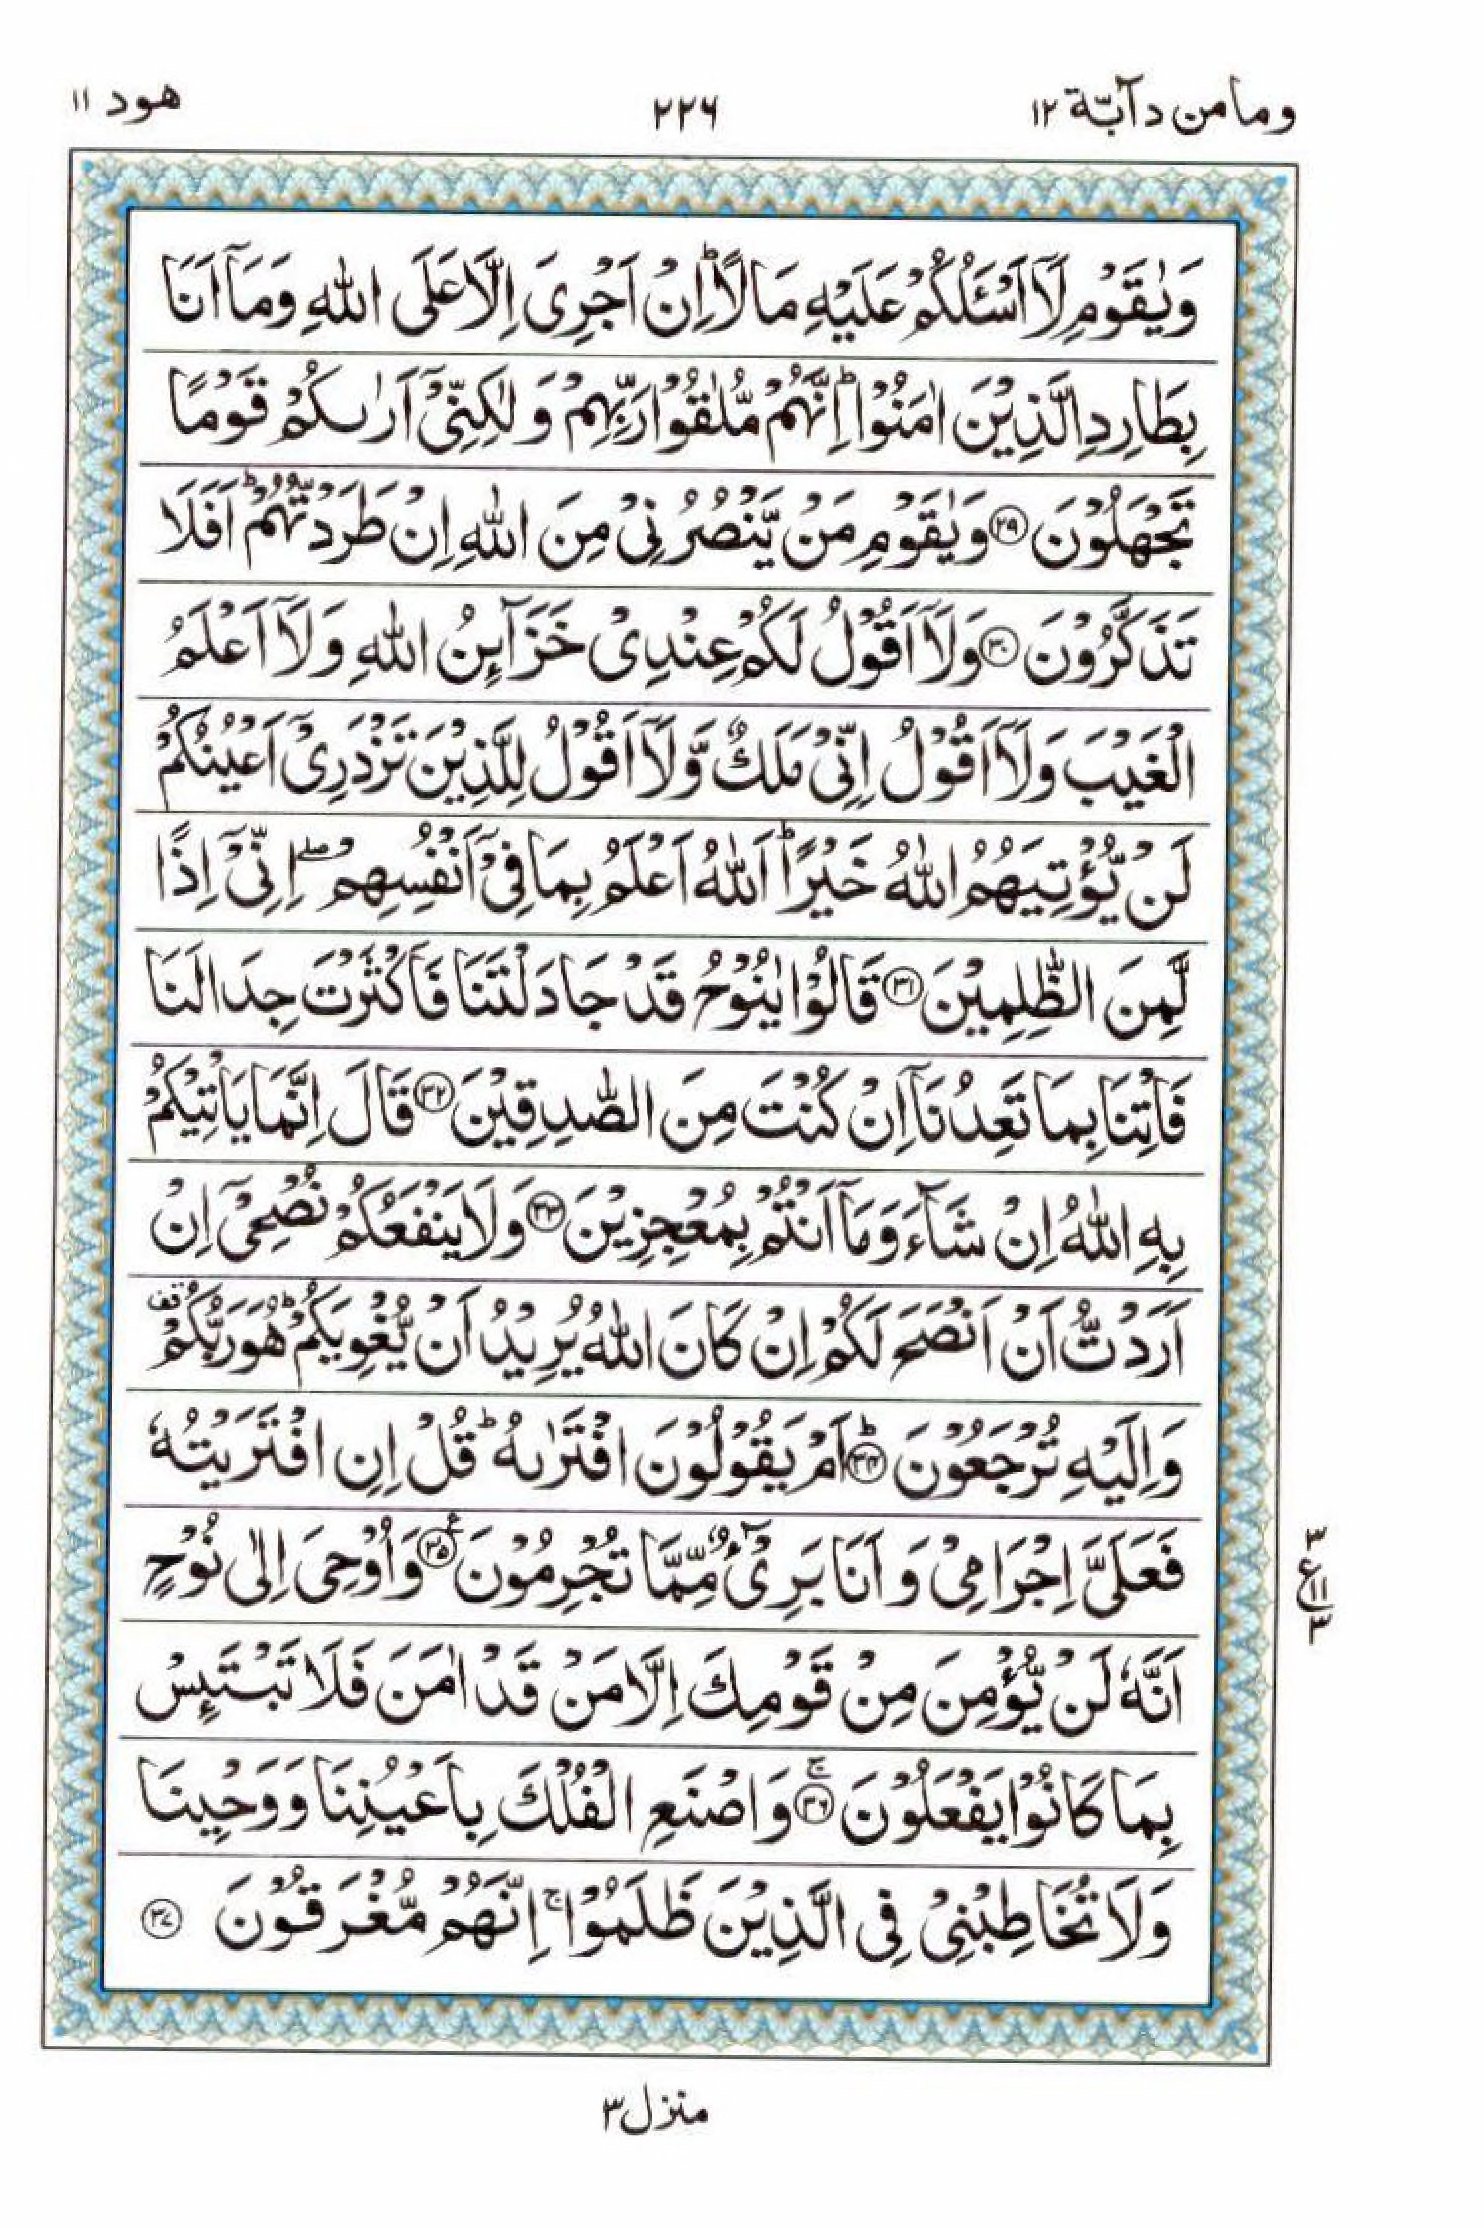 وما من دآبّة ١٢
٢٢٦
هود ١١
وَيٰقَوْمِ لَآ اَسْـَٔلُكُمْ عَلَيْهِ مَالًا ؕ اِنْ اَجْرِىَ اِلَّا عَلَى اللّٰهِ وَمَآ اَنَا
بِطَارِدِ الَّذِيْنَ اٰمَنُوْا ؕ اِنَّهُمْ مُّلٰقُوْا رَبِّهِمْ وَلٰكِنِّىْۤ اَرٰىكُمْ قَوْمًا
تَجْهَلُوْنَ ﴿۲۹﴾ وَيٰقَوْمِ مَنْ يَّنْصُرُنِىْ مِنَ اللّٰهِ اِنْ طَرَدْتُّهُمْ ؕ اَفَلَا
تَذَكَّرُوْنَ ﴿۳۰﴾ وَلَآ اَقُوْلُ لَكُمْ عِنْدِىْ خَزَآئِنُ اللّٰهِ وَلَآ اَعْلَمُ
الْغَيْبَ وَلَآ اَقُوْلُ اِنِّىْ مَلَكٌ وَّلَآ اَقُوْلُ لِلَّذِيْنَ تَزْدَرِىْۤ اَعْيُنُكُمْ
لَنْ يُّؤْتِيَهُمُ اللّٰهُ خَيْرًا ؕ اَللّٰهُ اَعْلَمُ بِمَا فِىْۤ اَنْفُسِهِمْ ۖۚ اِنِّىْۤ اِذًا
لَّمِنَ الظّٰلِمِيْنَ ﴿۳۱﴾ قَالُوْا يٰنُوْحُ قَدْ جَادَلْتَنَا فَاَكْثَرْتَ جِدَالَنَا
فَاْتِنَا بِمَا تَعِدُنَاۤ اِنْ كُنْتَ مِنَ الصّٰدِقِيْنَ ﴿۳۲﴾ قَالَ اِنَّمَا يَاْتِيْكُمْ
بِهِ اللّٰهُ اِنْ شَآءَ وَمَاۤ اَنْتُمْ بِمُعْجِزِيْنَ ﴿۳۳﴾ وَلَا يَنْفَعُكُمْ نُصْحِىْۤ اِنْ
اَرَدْتُّ اَنْ اَنْصَحَ لَكُمْ اِنْ كَانَ اللّٰهُ يُرِيْدُ اَنْ يُّغْوِيَكُمْ ؕ هُوَ رَبُّكُمْ قف
وَاِلَيْهِ تُرْجَعُوْنَ ؕ﴿۳۴﴾ اَمْ يَقُوْلُوْنَ افْتَرٰىهُ ؕ قُلْ اِنِ افْتَرَيْتُهٗ
فَعَلَىَّ اِجْرَامِىْ وَاَنَا بَرِىْٓءٌ مِّمَّا تُجْرِمُوْنَ ﴿۳۵﴾ ع وَاُوْحِىَ اِلٰى نُوْحٍ
اَنَّهٗ لَنْ يُّؤْمِنَ مِنْ قَوْمِكَ اِلَّا مَنْ قَدْ اٰمَنَ فَلَا تَبْتَئِسْ
بِمَا كَانُوْا يَفْعَلُوْنَ ۚ﴿۳۶﴾ وَاصْنَعِ الْفُلْكَ بِاَعْيُنِنَا وَوَحْيِنَا
وَلَا تُخَاطِبْنِىْ فِى الَّذِيْنَ ظَلَمُوْا ۚ اِنَّهُمْ مُّغْرَقُوْنَ ﴿۳۷﴾
٣
ع ١١
٣
منزل ٣